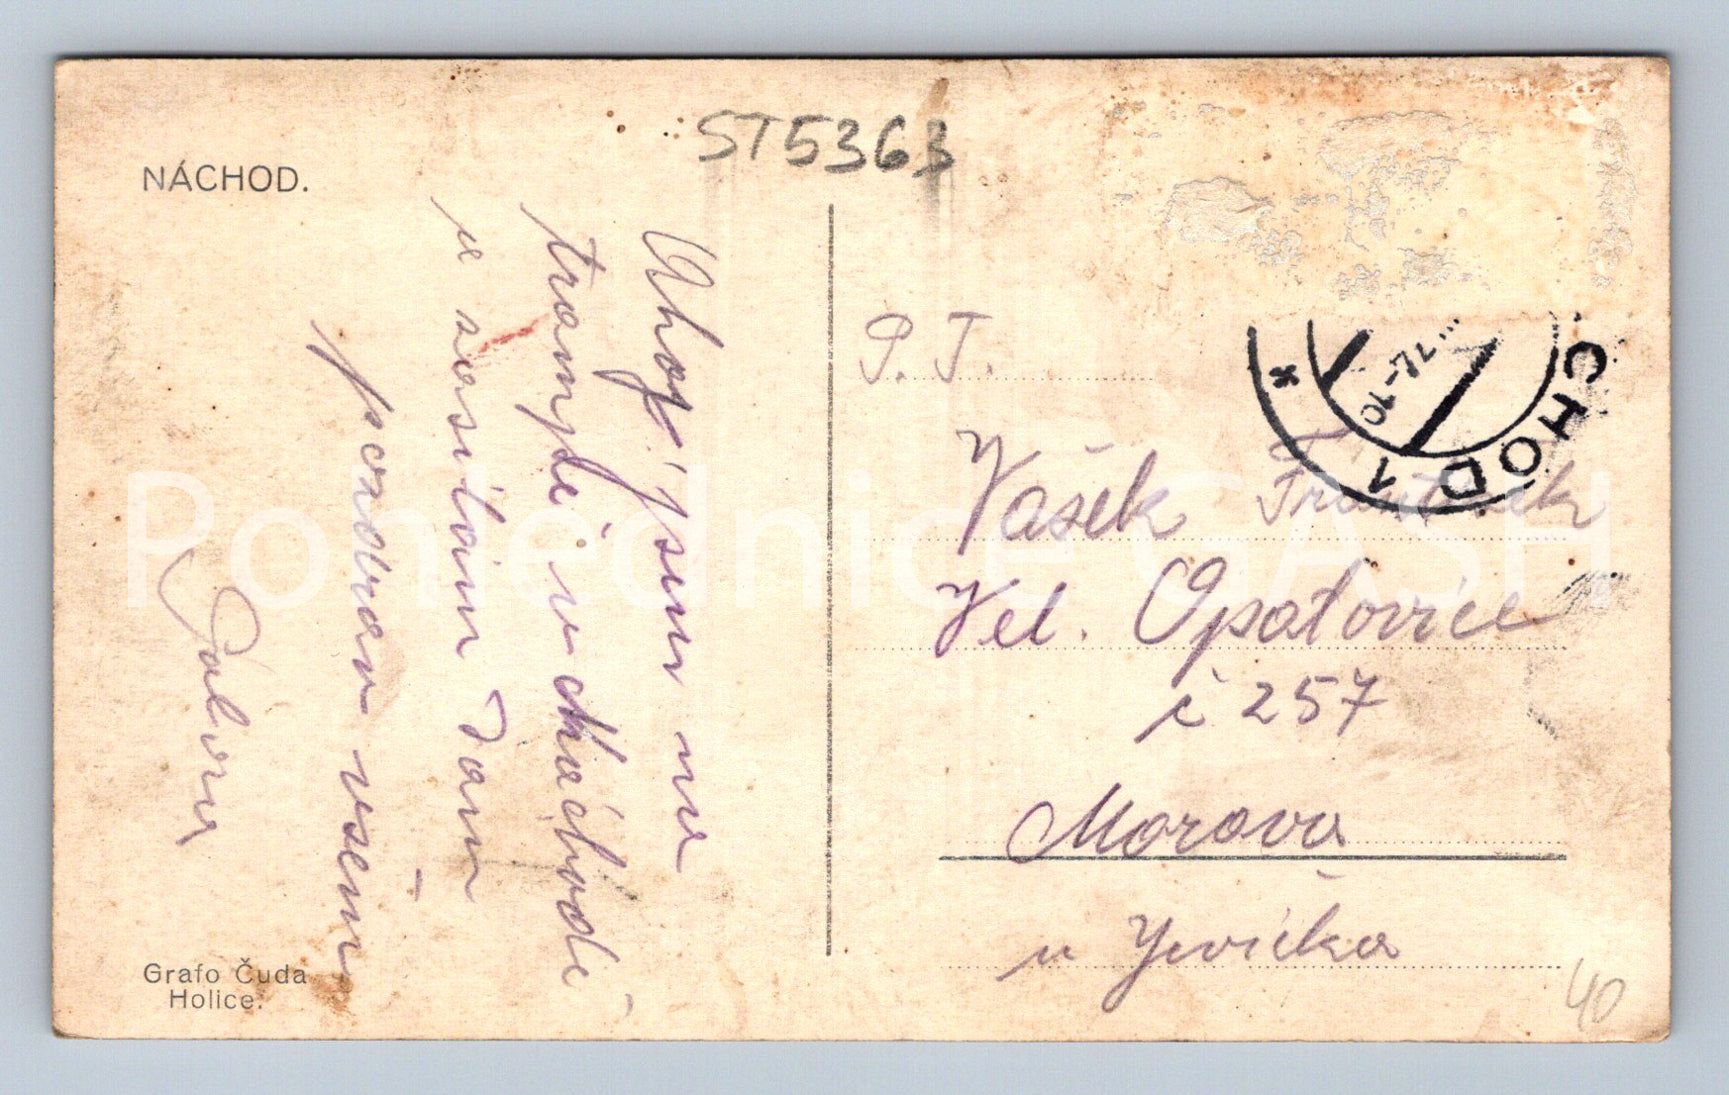 ST5363
NÁCHOD.
Ahoj! jsem na
trampě v Náchodě
a zasílám Vám
pozdrav všem
P. T.
Vašek František
Vel. Opatovice
č 257
Morava
u Jevíčka
CHOD 1
Grafo Čuda
Holice.
40
Pohlednice GASH